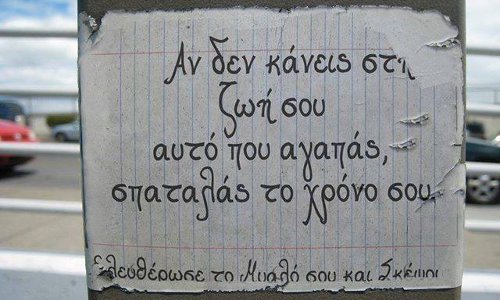 Αν δεν κάνεις στη
ζωή σου
αυτό που αγαπάς,
σπαταλάς το χρόνο σου.
Ελευθέρωσε το Μυαλό σου και